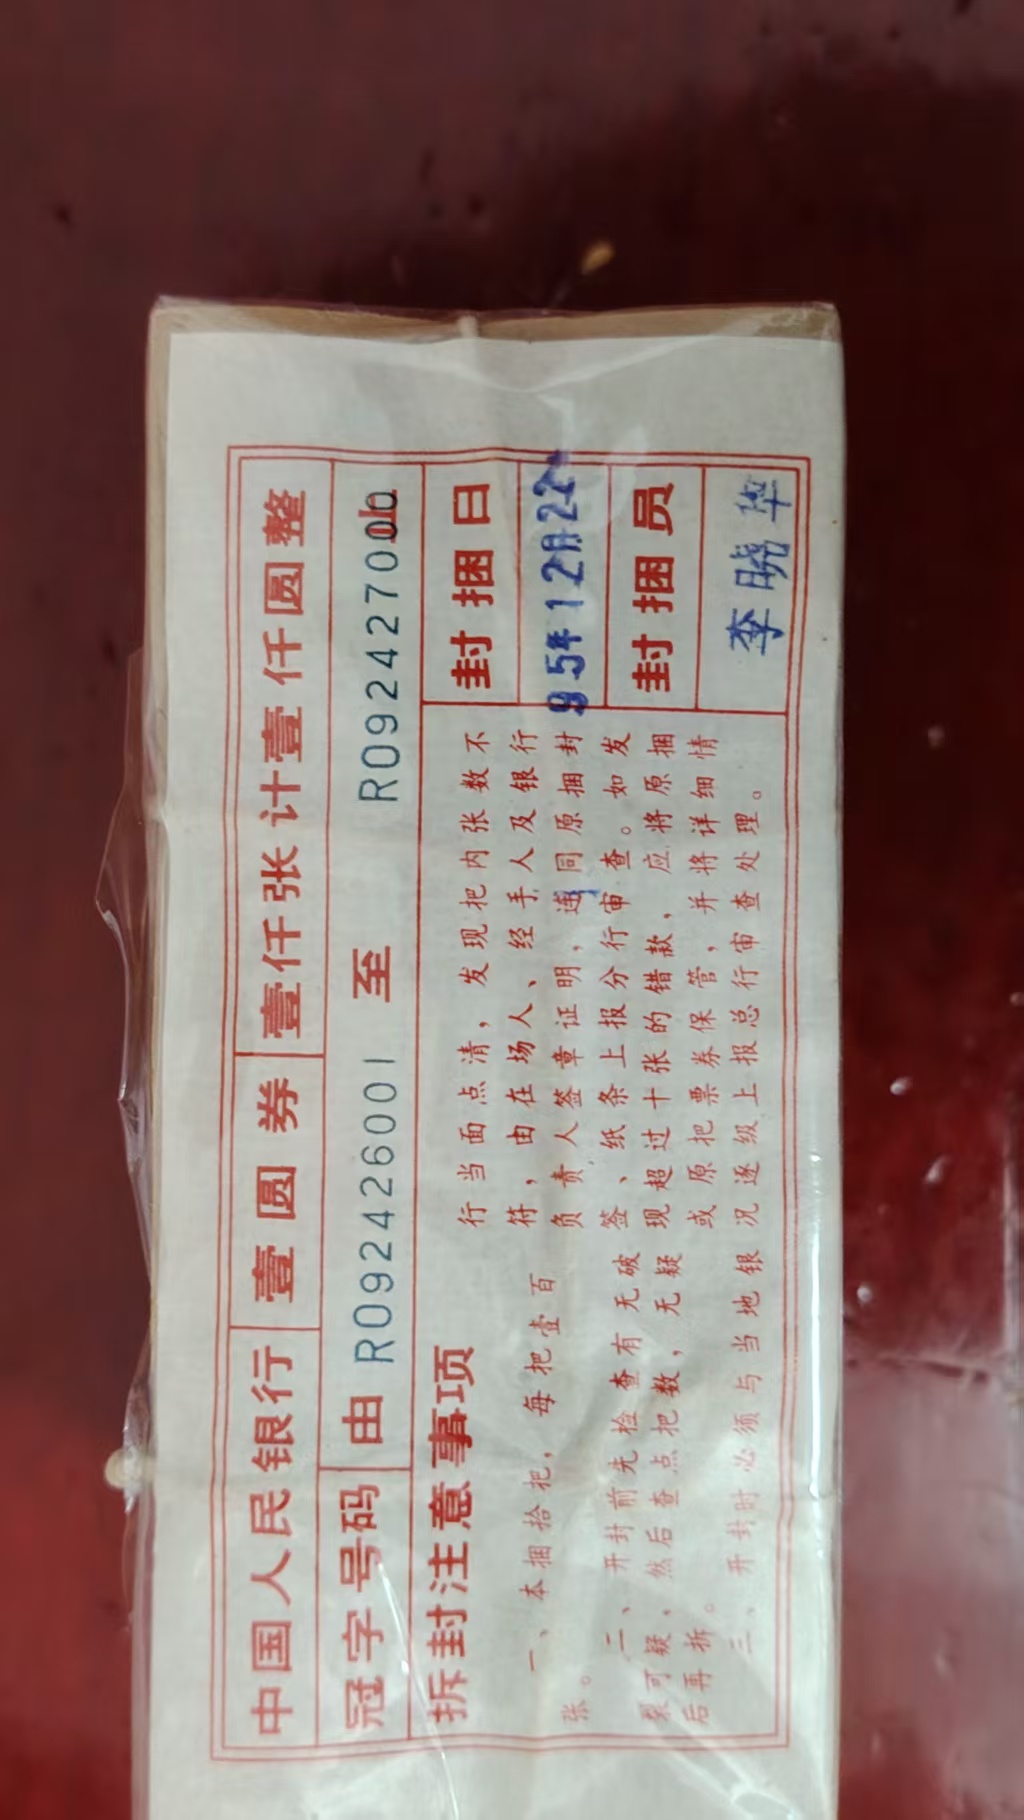 中国人民银行 壹圆券 壹仟张计壹仟圆整
冠字号码 由 R092426001 至 R092427000 止
拆封注意事项
一、本捆拾把，每把壹百
张。
二、开封前先检查有无破
裂可疑，然后查点把数，无疑
后再拆。
三、开封时必须与当地银
行当面点清，发现把内张数不
符，由在场人、经手人及银行
负责人签章证明，连同原捆封
签、纸条上报分行审查。如发
现超过十张的错款，应将原捆
或原把票券保管，并将详细情
况逐级上报总行审查处理。
封捆日
95年12月22
封捆员
李晓华